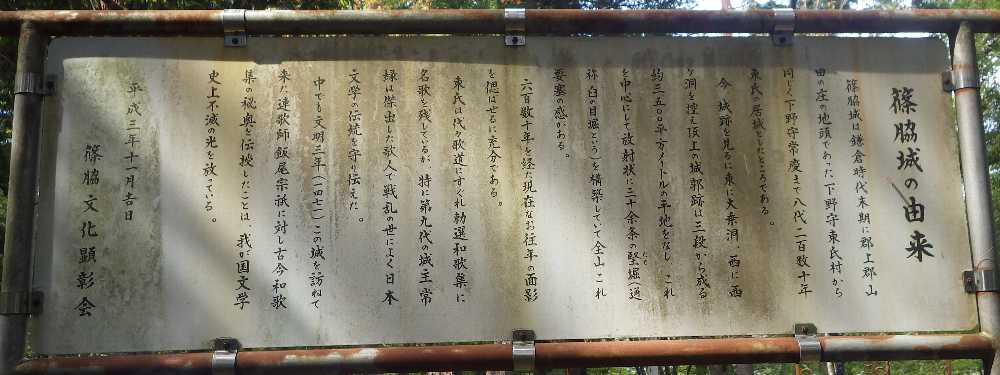 篠脇城の由来
篠脇城は鎌倉時代末期に郡上郡山
田の庄の地頭であった下野守東氏村から
同じく下野守常慶まで八代二百数十年
東氏の居城としたところである。
今、城跡を見るに東に大奈洞、西に西
ヶ洞を控え頂上の城郭跡は三段から成る
約三五〇〇平方メートルの平地をなし、これ
を中心にして放射状に三十余条の竪堀(通
称臼の目堀という)を構築していて全山これ
要塞の感がある。
六百数十年を経た現在なお往年の面影
を偲ばせるに充分である。
東氏は代々歌道にすぐれ勅選和歌集に
名歌を残しているが、特に第九代の城主常
縁は傑出した歌人で戦乱の世によく日本
文学の伝統を守り伝えた。
中でも文明三年(一四七一)この城を訪ねて
来た連歌師飯尾宗祇に対し古今和歌
集の秘奥を伝授したことは、我が国文学
史上不滅の光を放っている。
平成三年十一月吉日
篠脇文化顕彰会